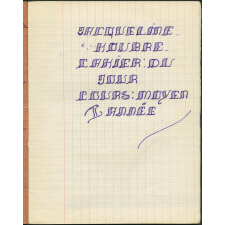 JACQUELINE.
HOUBRE.
CAHIER: DU
JOUR
COURS: MOYEN
1 ANNÉE